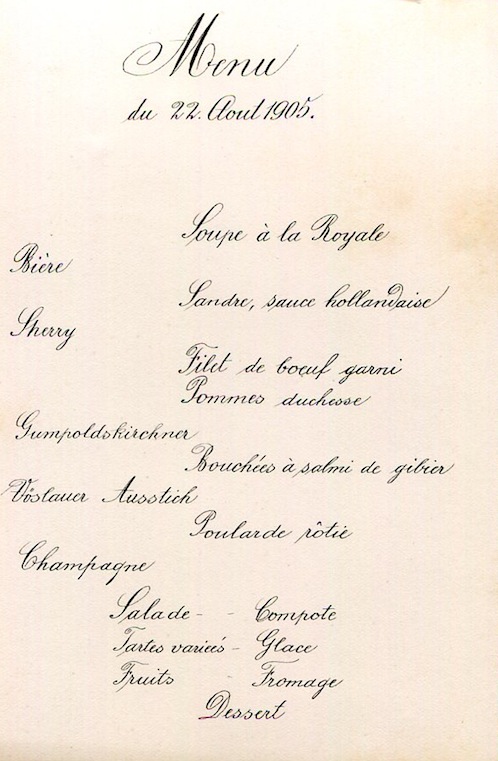 Menu
du 22. Aout 1905.
Soupe à la Royale
Bière
Sandre, sauce hollandaise
Sherry
Filet de boeuf garni
Pommes duchesse
Gumpoldskirchner
Bouchées à salmi de gibier
Vöslauer Ausstich
Poularde rôtie
Champagne
Salade - - Compote
Tartes variées - Glace
Fruits Fromage
Dessert